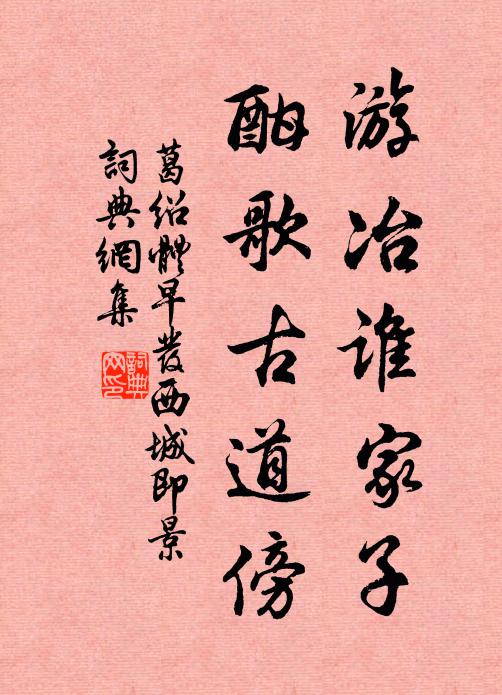 游冶谁家子
酣歌古道傍
葛绍體早發西城即景
詞典網集
詞典網印